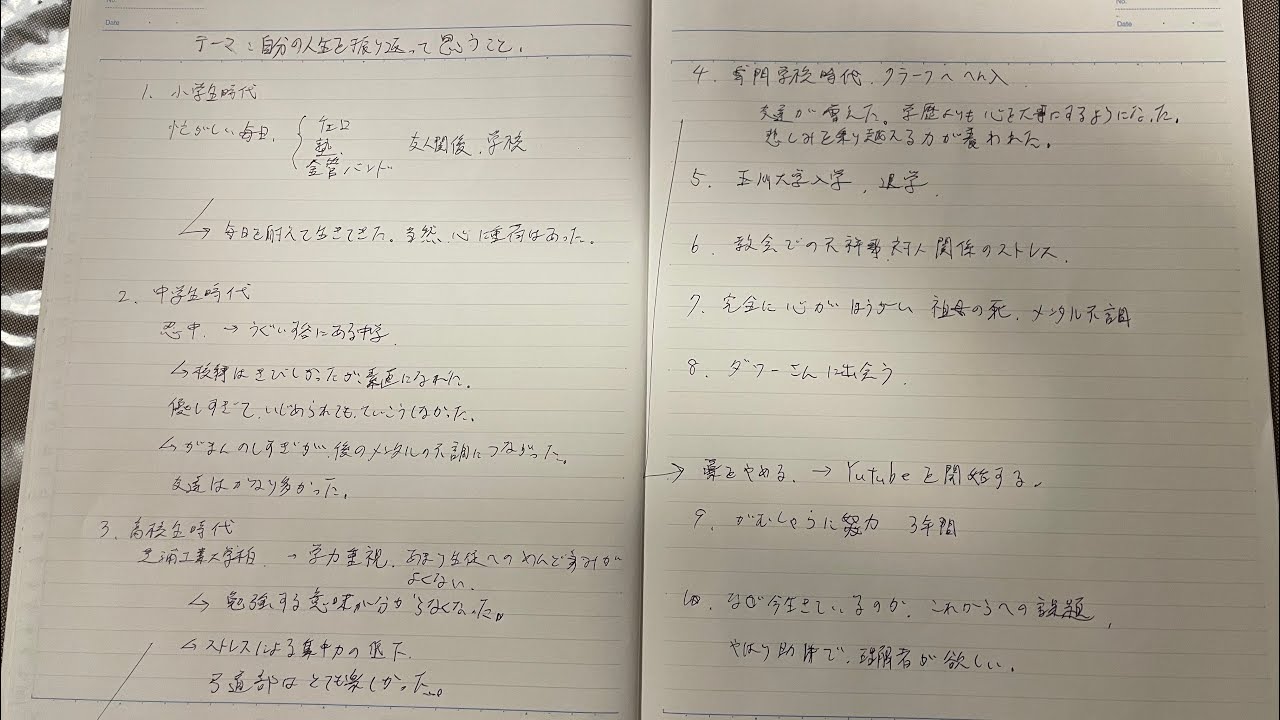 No.
Date
テーマ:自分の人生を振り返って思うこと.
1. 小学生時代
忙がしい毎日.
塾.
金管バンド
友人関後.学校
毎日を耐えて生きてきた。当然、心に重荷はあった。
2. 中学生時代
忍中. → うぐい後にある中学.
↳校律はきびしかったが、素直になれた。
優しすぎて、いじめられても、ていこうしなかった。
↳がまんのしすぎが、後のメンタルの不調につながった。
友達はかなり多かった。
3. 高校生時代
芝浦工業大学柏 → 学力重視.あまり生徒へのめんどうみが
よくない.
↳ 勉強する意味が分からなくなった。
↳ストレスによる集中力の低下.
弓道部はとても楽しかった。
No.
Date
4. 専門学校時代.クラークへへん入
友達が増えた。学歴よりも心を大事にするようになった。
悲しみを乗り越える力が養われた。
5. 玉川大学入学、退学.
6. 教会での不祥事.対人関係のストレス.
7. 完全に心がほうかい 祖母の死.メンタル不調
8. ダワーさんに出会う.
→ 薬をやめる. → Yutubeを開始する.
9. がむしゃらに努力 3年間
10. なぜ今生きているのか.これからへの課題.
やはり助けて.理解者が欲しい.